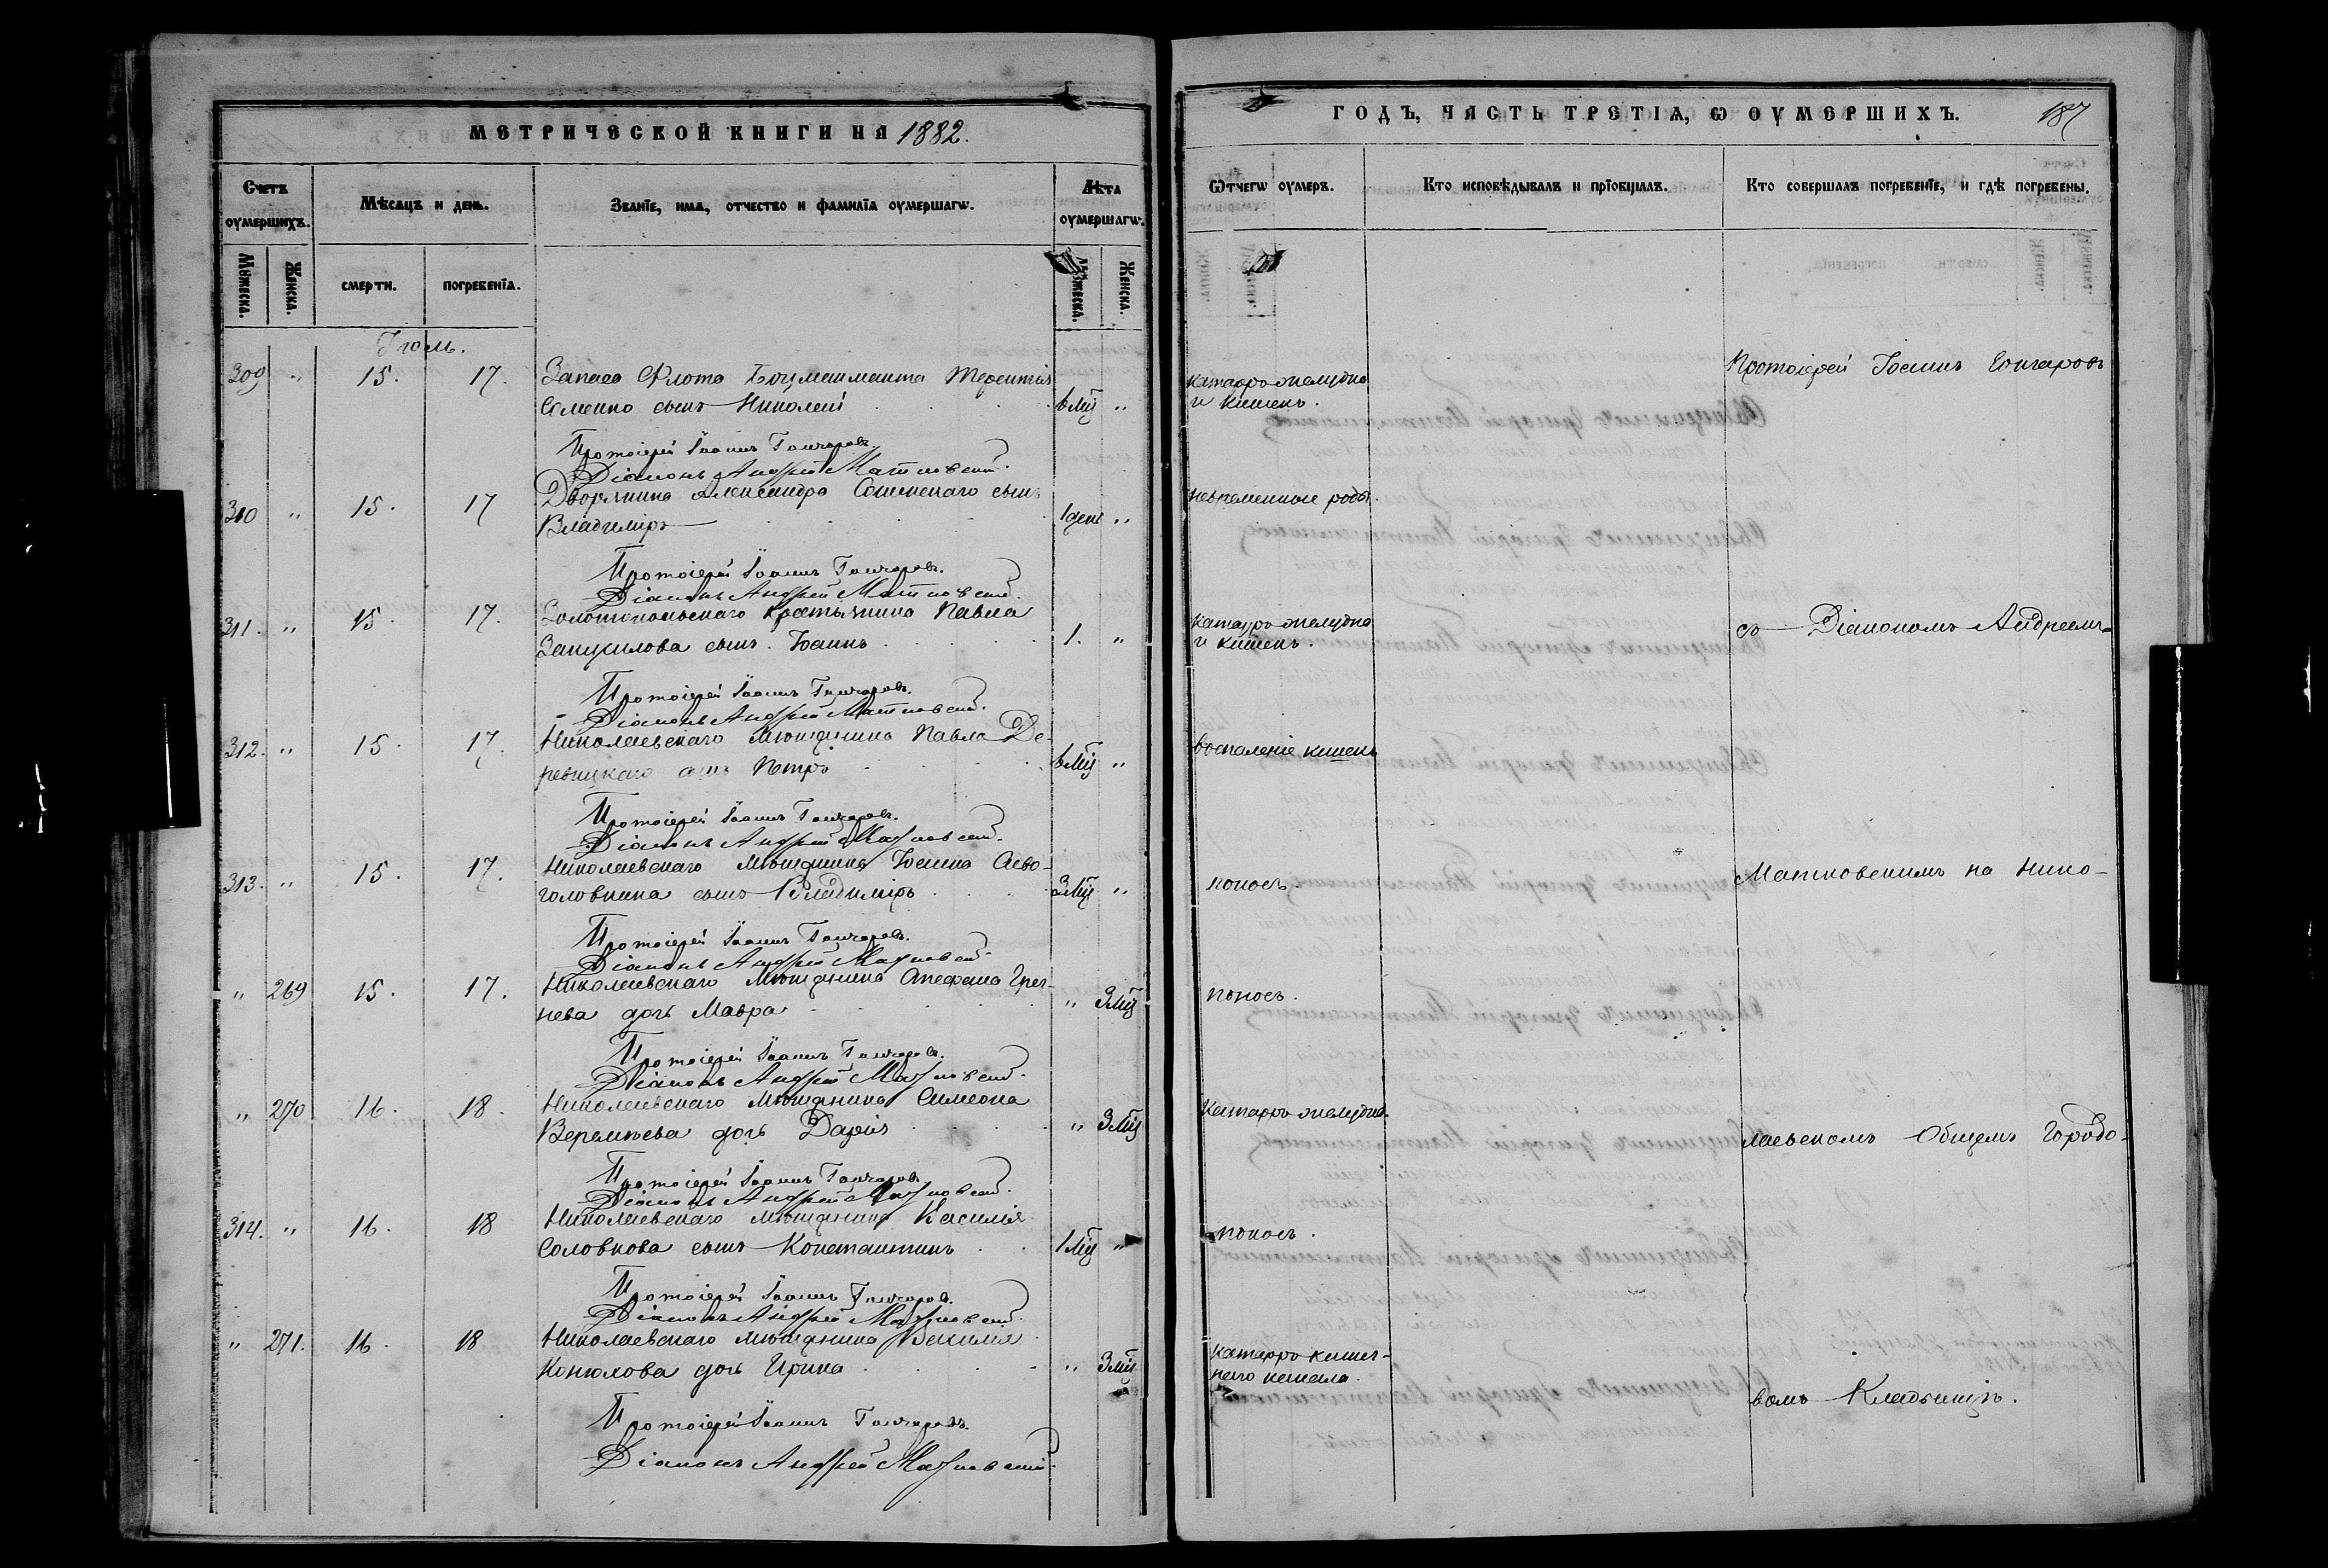 МЕТРИЧЕСКОЙ КНИГИ НА 1882.
Счетъ оумершихъ.
Мѣсяцъ и день.
Званїе, имя, отчество и фамилїа оумершагѡ.
Лѣта оумершагѡ.
Мꙋжеска. Женска. смерти. погребенїа. Мꙋжеска. Женска.
Іюль.
309 " 15. 17. Запаса Флота Боцманмата Терентія
Семенко сынъ Николай 6 мц "
Протоіерей Іоаннъ Гончаровъ.
Діаконъ Андрей Матковскій.
310 " 15. 17 Дворянина Александра Сошинскаго сынъ
Владиміръ 1 день "
Протоіерей Іоаннъ Гончаровъ.
Діаконъ Андрей Матковскій.
311. " 15. 17. Золотоношскаго крестьянина Павла
сынъ Іоаннъ 1. "
Протоіерей Іоаннъ Гончаровъ.
Діаконъ Андрей Матковскій.
312. " 15. 17. Николаевскаго мѣщанина Павла Де-
ревицкаго сынъ Петръ 6 мц "
Протоіерей Іоаннъ Гончаровъ.
Діаконъ Андрей Матковскій.
313. " 15. 17. Николаевскаго мѣщанина Іоанна
головкина сынъ Владиміръ 3 мц "
Протоіерей Іоаннъ Гончаровъ.
Діаконъ Андрей Матковскій.
" 269 15. 17. Николаевскаго мѣщанина Стефана Греч-
нева дочь Мавра " 3 мц
Протоіерей Іоаннъ Гончаровъ.
Діаконъ Андрей Матковскій.
" 270 16. 18. Николаевскаго мѣщанина Симеона
Веремѣева дочь Дарія " 3 мц
Протоіерей Іоаннъ Гончаровъ.
Діаконъ Андрей Матковскій.
314. " 16. 18 Николаевскаго мѣщанина Василія
Соловкова сынъ Константинъ 1 мц "
Протоіерей Іоаннъ Гончаровъ.
Діаконъ Андрей Матковскій.
" 271. 16. 18 Николаевскаго мѣщанина Василія
Конюлова дочь Ирина " 3 мц
Протоіерей Іоаннъ Гончаровъ.
Діаконъ Андрей Матковскій.
ГОДЪ, ЧАСТЬ ТРЕТІА, Ѡ ОУМЕРШИХЪ. 187
Ѿчегѡ оумеръ.
Кто исповѣдывалъ и прїобщалъ.
Кто совершалъ погребенїе, и гдѣ погребены.
катарръ желудка
и кишекъ.
Протоіерей Іоаннъ Гончаровъ
роды.
катарръ желудка
и кишекъ.
съ Діакономъ Андреемъ
воспаленіе кишекъ
поносъ.
Матковскимъ на Нико-
поносъ.
Катарръ желудка.
лаевскомъ Общемъ Городо-
поносъ.
катарръ кишеч-
наго канала.
вомъ Кладбищѣ.